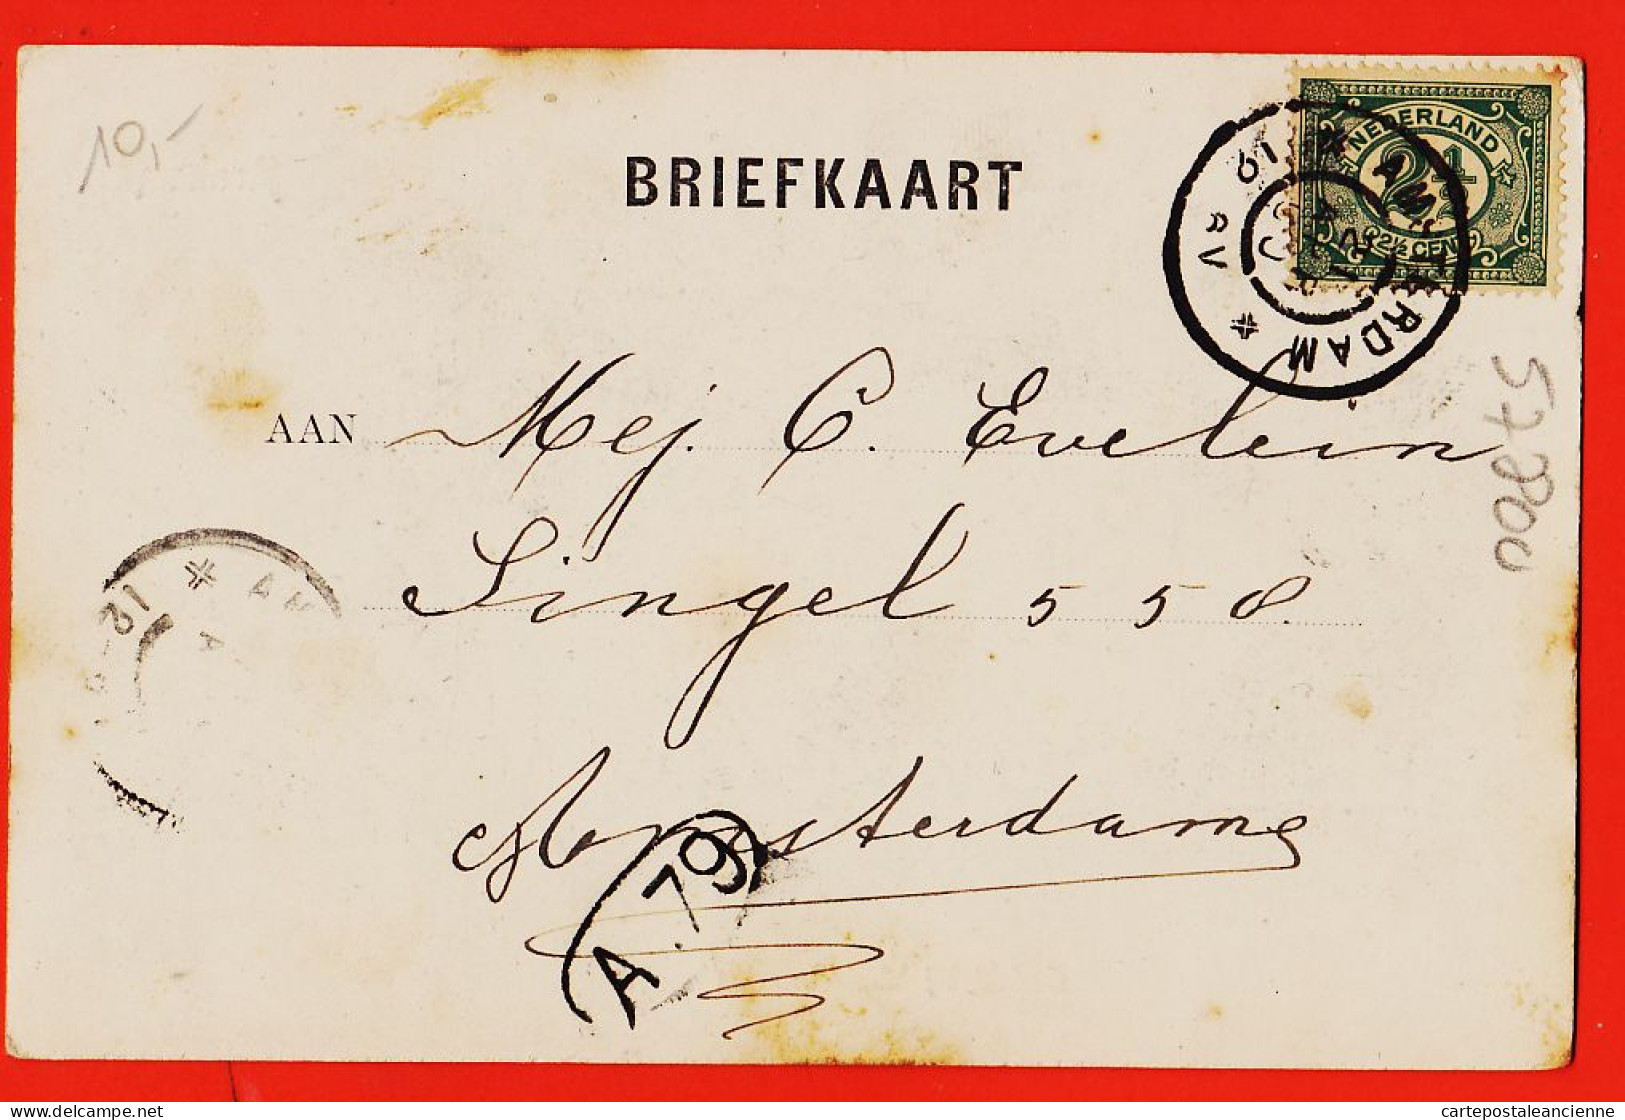 10,-
BRIEFKAART
NEDERLAND
2½
2½ CENT
AMSTERDAM
AAN Mej. C. Evelein
Singel 558.
Amsterdam
A 79
57800
delcampe.net
cartepostaleancienne